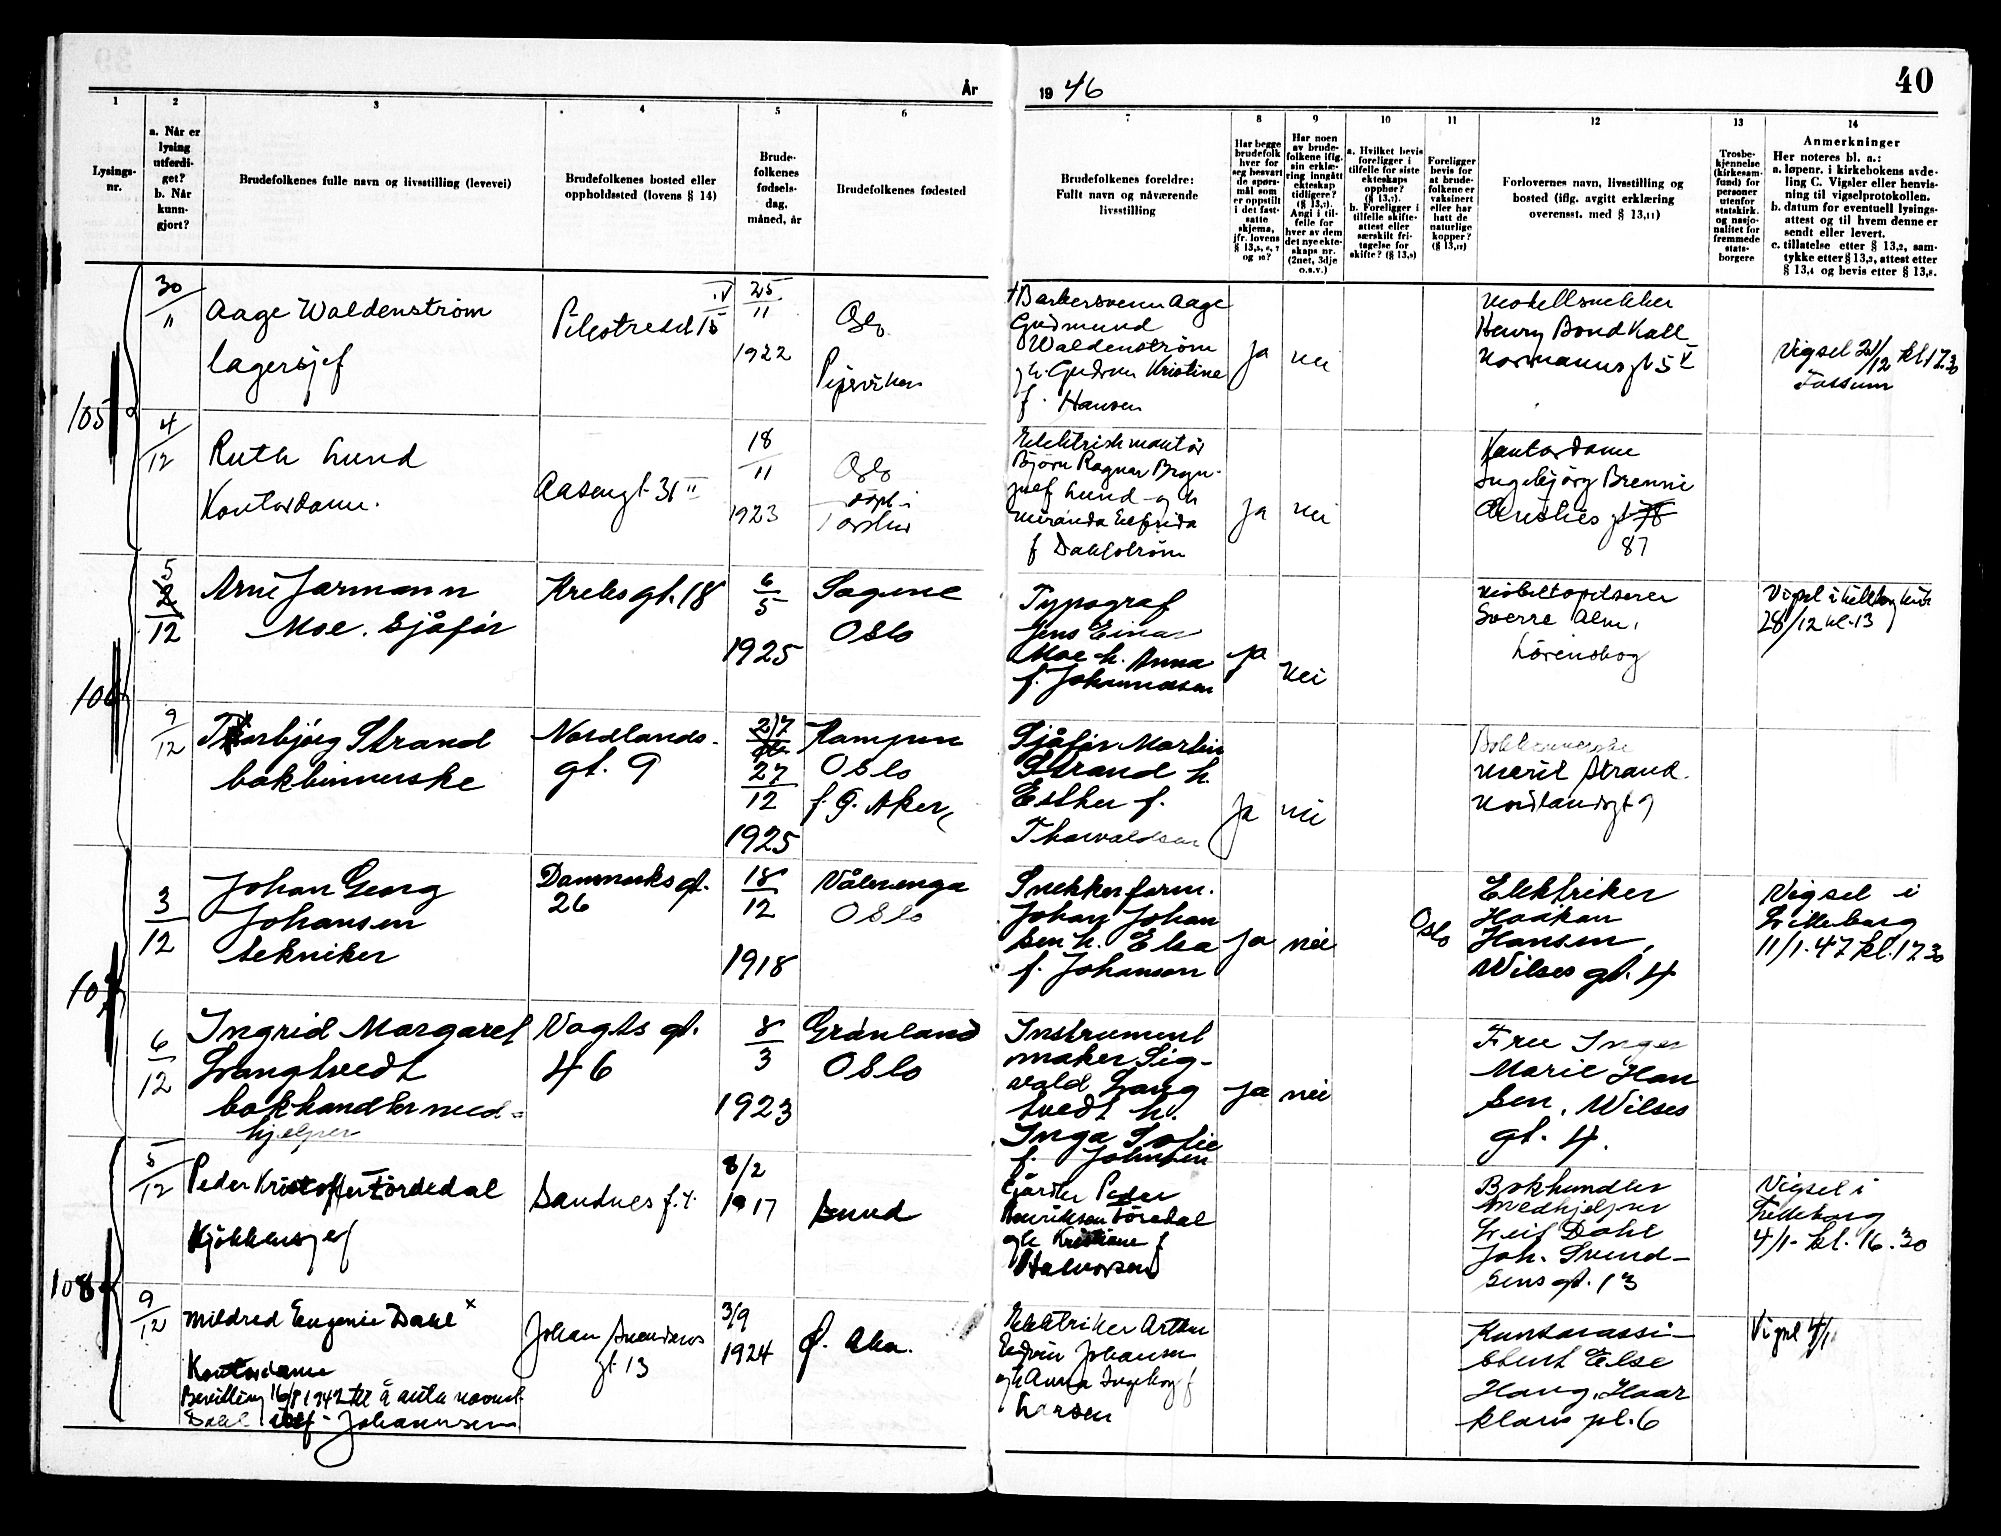 År
19 46
40
1
2
3
4
5
6
7
8
9
10
11
12
13
14
Lysings-
nr.
a. Når er
lysing
utferdi-
get?
b. Når
kunn-
gjort?
Brudefolkenes fulle navn og livsstilling (levevei)
Brudefolkenes bosted eller
oppholdssted (lovens § 14)
Brude-
folkenes
fødsels-
dag,
måned, år
Brudefolkenes fødested
Brudefolkenes foreldre:
Fullt navn og nåværende
livsstilling
Har begge
brudefolk
hver for
seg besvart
de spørs-
mål som
er oppstilt
i det fast-
satte
skjema,
jfr. lovens
Har noen
av brude-
folkene iflg.
sin erklæ-
ring inngått
ekteskap
tidligere?
Angi i til-
felle for
hver av dem
det nye ekte-
skaps nr.
(2net, 3dje
o.s.v.)
a. Hvilket bevis
foreligger i
tilfelle for siste
ekteskaps
opphør?
b. Foreligger i
tilfelle skifte-
attest eller
særskilt fri-
tagelse for
skifte?
Foreligger
bevis for
at brude-
folkene er
vaksinert
eller har
hatt de
naturlige
kopper?
Forlovernes navn, livsstilling og
bosted (iflg. avgitt erklæring
overensst. med § 13,11)
Trosbe-
kjennelse
(kirkesam-
fund) for
personer
utenfor
statskirk.
og nasjo-
nalitet for
fremmede
stats-
borgere
Anmerkninger
Her noteres bl. a.:
a. løpenr. i kirkebokens avde-
ling C. Vigsler eller henvis-
ning til vigselprotokollen.
b. datum for eventuell lysings-
attest og til hvem denne er
sendt eller levert.
c. tillatelse etter § 13,2, sam-
tykke etter § 13,3, attest etter
§ 13,4 og bevis etter § 13,8.
105
30/11
Aage Waldenström
lagersjef
Pilestredet 15 IV
25/11
1922
Oslo
Pipervika
† Barbersvenn Aage
Gudmund
Waldenström
og h. Gudrun Kristine
f. Hansen
ja
nei
Modellsnekker
Henry Bondkall
Normannsgt 5 V
Vigsel 21/12 kl. 17.30
Fossum
4/12
Ruth Lund
Kontordame.
Aasengt. 31 II
18
11
1923
Oslo
døpt i
Elektrisk montør
Bjørn Ragnar Bryn-
julf Lund og h
Miranda Elfrida
f Dahlstrøm
ja
nei
Kontordame
Ingebjørg Brenni
Christies gt 78
87
106
5
2
12
Arne Jarmann
Moe. Sjåfør
Krebsgt. 18
6
5
1925
Sagene
Oslo
Typograf
Jens Einar
Moe h. Anna
f. Johannessen
ja
nei
Møbeltapetserer
Sverre Alm,
Lørenskog
28/12 kl. 13
9/12
Thorbjörg Strand
bokbinnerske
Nordlands-
gt. 9
27
12
1925
Kampen
Oslo
f. Ø. Aker
Sjåfør Martin
Strand h.
Esther f.
Thorvaldsen
Ja
nei
Marit Strand.
Nordlandsgt 9
107
3
12
Johan Georg
Johansen
tekniker
Danmarks gt.
26
18
12
1918
Vålerenga
Oslo
Snekkerform.
Johan Johan
sen h. Elsa
f. Johanson
ja
nei
Oslo
Elektriker
Haakon
Hansen,
Wilses gt. 4
Vigsel i
Lilleborg
11/1-47 kl. 17 30
6
12
Ingrid Margaret
Langtvedt
bokhandlermed-
hjelper
Vogts gt.
46
8
3
1923
Grønland
Oslo
Instrument
maker Sig-
vald Lang
tvedt h.
Inga Sofie
f. Johnsen
ja
nei
Frue Inger
Marie Han
sen, Wilses
gt. 4.
108
5
12
Peder Kristoffer Tördedal
Kjøkkensjef
Sandnes f. t.
8/2
1917
Gårdbr Peder
Henriksen Tördedal
og h Kristiane f
Halvorsen
Bokhandler
medhjelper
Leif Dahl
Joh. Svend-
sens gt. 13
Vigsel i
Lilleborg
4/1- kl. 16.30
9
12
Mildred Eugenie Dahl x
Kontordame
Bevilling 16/9 1942 til å anta navnet
Dahl istf. Johannsen
Johan Svendsens
gt. 13
3/9
1924
Ø. Aker.
Elektriker Arthur
Edvin Johansen
og h Anna Ingeborg f
Larsen
Kontorassi-
stent Else
Haug, Haar
klous pl. 6
Vigsel 4/1